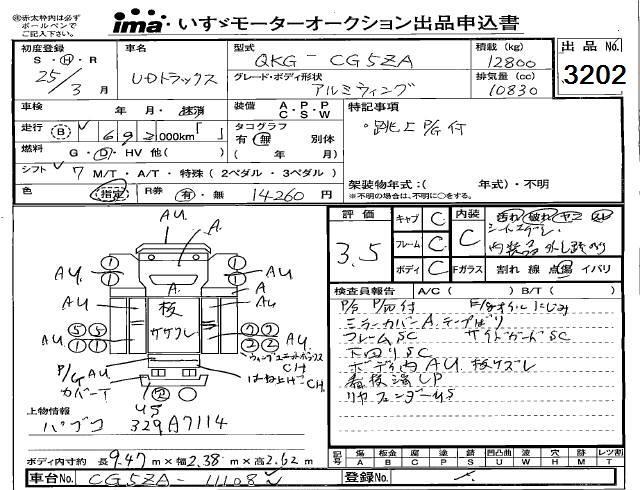 ※赤太枠内は必ずボールペンでご記入下さい
ima いすゞモーターオークション出品申込書
初度登録 車名 型式 QKG-CG5ZA 積載(kg) 12800 出品No. 3202
S・H・R 25/3月 UDトラックス グレード・ボディ形状 アルミウィング 排気量(cc) 10830
車検 年・月・抹消 装備 A・P・P C・S・W 特記事項
走行 (B) 693000km「」 タコグラフ 有・無 別体 ・跳上P/G付
燃料 G・D・HV 他( ) ( 年/ 月)
シフト 7 M/T・A/T・特殊(2ペダル・3ペダル)
架装物年式:( 年式)・不明
色 指定 R券 有・無 14260円 ※不明の場合は、不明に○をする。
評価 3.5 キャブ C 内装 C 汚れ 破れ ヤニ スレ
フレーム C シートスケシ. 内装品外し跡あり
ボディ C Fガラス 割れ 線 点傷 イバリ
AU. A.
A. AU AU. A
AU AU 板ササクレ AU AU.
P/G カバーT AU ウィングユニットボックスCH はね上げCH
U5
検査員報告 A/C( ) B/T( )
ミラーカバーA.テープばり
フレームSC サイドガードSC
下回りSC
ボディ内AU.板ササクレ
看板済UP
リヤフェンダーU5
上物情報 パブコ 329A7114
記号 傷A 板金B 腐C 塗P 錆S 凹凸曲U ワイパーW 穴H 跡M レツ割T
ボディ内寸約 長9.47m×幅2.38m×高2.62m
車台No. CG5ZA-11108 登録No.